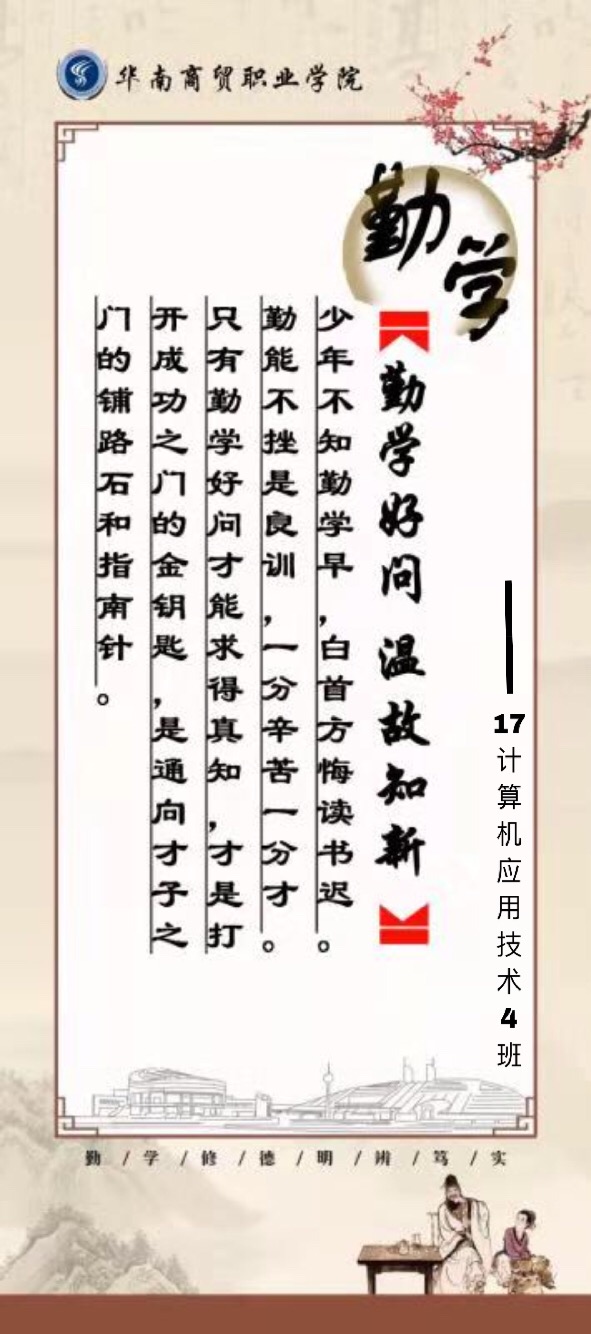 华南商贸职业学院
勤学
勤学好问 温故知新
少年不知勤学早,白首方悔读书迟。
勤能不挫是良训,一分辛苦一分才。
只有勤学好问才能求得真知,才是打
开成功之门的金钥匙,是通向才子之
门的铺路石和指南针。
17计算机应用技术4班
勤/学/修/德/明/辨/笃/实